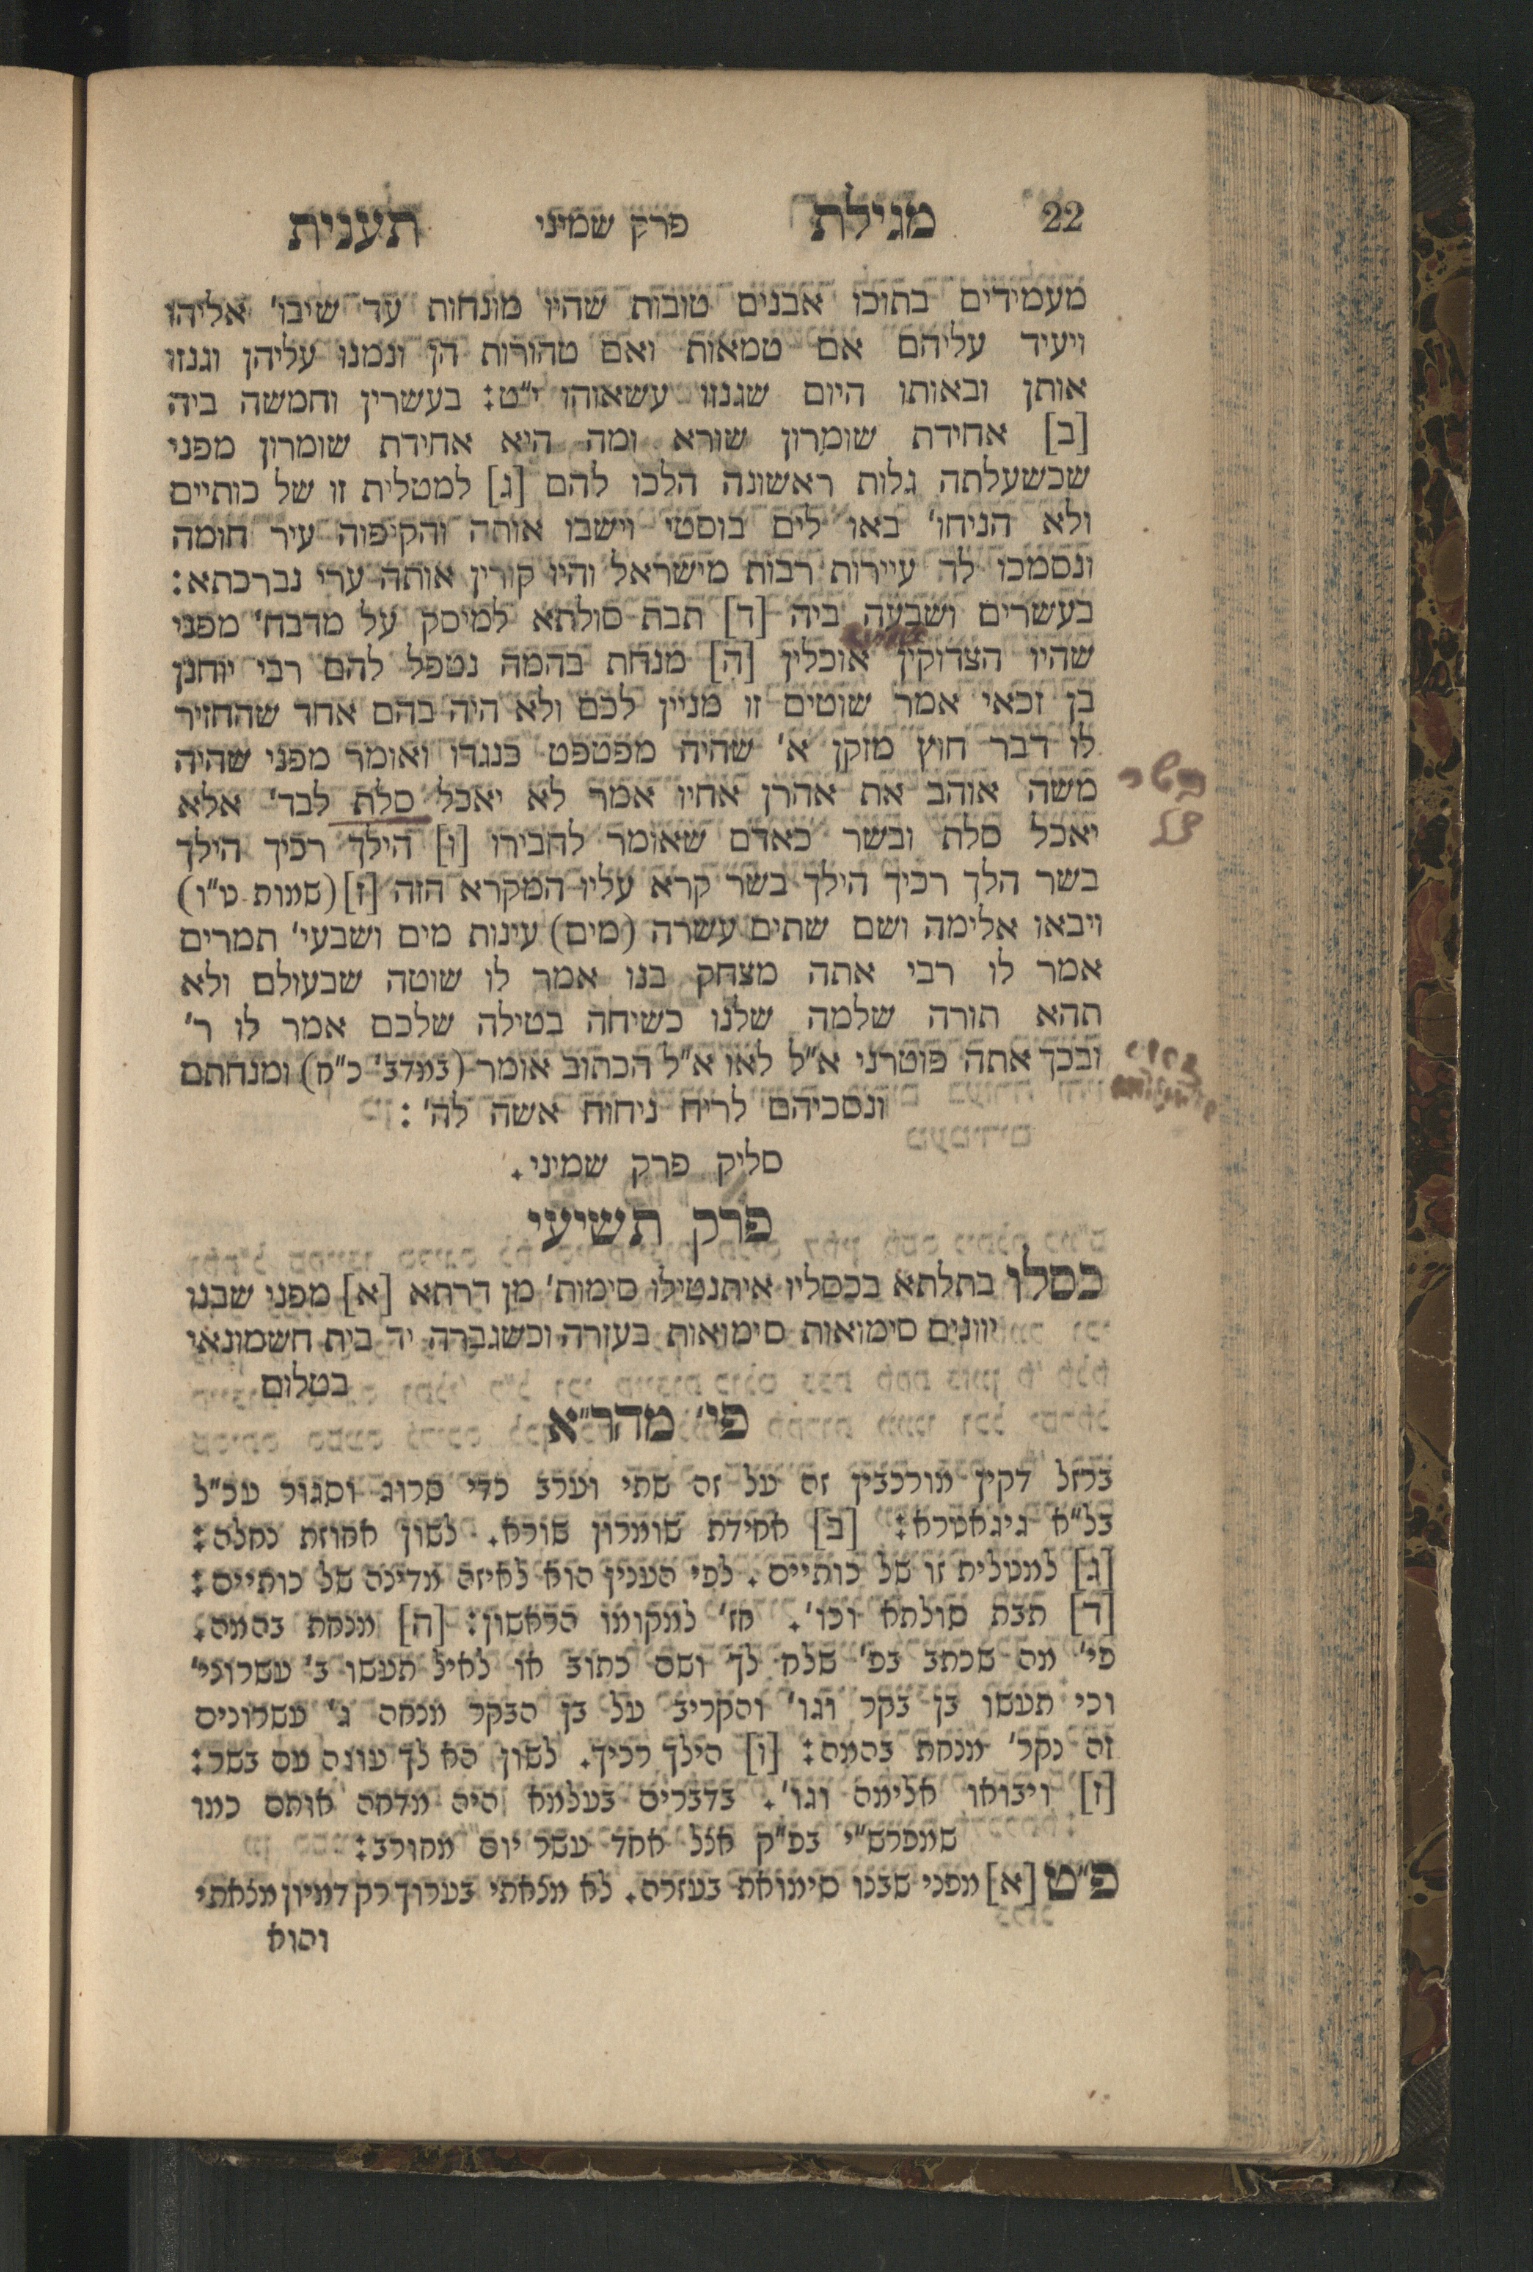 22 מגילת פרק שמיני תענית
מעמידים בתוכו אבנים טובות שהיו מונחות עד שיבו' אליהו
ויעיד עליהם אם טמאות ואם טהורות הן ונמנו עליהן וגנזו
אותן ובאותו היום שגנזו עשאוהו י"ט: בעשרין וחמשה ביה
[ב] אחידת שומרון שורא ומה היא אחידת שומרון מפני
שכשעלתה גלות ראשונה הלכו להם [ג] למטלית זו של כותיים
ולא הניחו' באו לים בוסטי וישבו אותה והקיפוה עיר חומה
ונסמכו לה עיירות רבות מישראל והיו קורין אותה ערי נברכתא:
בעשרים ושבעה ביה [ד] תבת סולתא למיסק על מדבח' מפני
שהיו הצדוקין אוכלין [ה] מנחת בהמה נטפל להם רבי יוחנן
בן זכאי אמר שוטים זו מניין לכם ולא היה בהם אחד שהחזיר
לו דבר חוץ מזקן א' שהיה מפטפט כנגדו ואומר מפני שהיה
משה אוהב את אהרן אחיו אמר לא יאכל סלת לבד' אלא
יאכל סלת ובשר כאדם שאומר לחבירו [ו] הילך רכיך הילך
בשר הלך רכיך הילך בשר קרא עליו המקרא הזה [ז] (שמות ט"ו)
ויבאו אלימה ושם שתים עשרה (מים) עינות מים ושבעי' תמרים
אמר לו רבי אתה מצחק בנו אמר לו שוטה שבעולם ולא
תהא תורה שלמה שלנו כשיחה בטילה שלכם אמר לו ר'
ובכך אתה פוטרני א"ל לאו א"ל הכתוב אומר (במדב' כ"ח) ומנחתם
ונסכיהם לריח ניחוח אשה לה':
סליק פרק שמיני.
פרק תשיעי
כסלו בתלתא בכסליו איתנטילו סימות' מן דרתא [א] מפני שבנו
יוונים סימואות סימואות בעזרה וכשגברה יד בית חשמונאי
בטלום
פי' מהר"א
ברזל דקין מורכבין זה על זה שתי וערב כדי סרוג וסגור עכ"ל
בל"א גיגאטרא: [ב] אחידת שומרון שורא. לשון אחוזת נחלה:
[ג] למטלית זו של כותיים. לפי הענין הוא לאיזה מדינה של כותיים:
[ד] תבת סולתא וכו'. חז' למקומו הראשון: [ה] מנחת בהמה.
פי' מה שכתב בפ' שלח לך ושם כתוב או לאיל תעשו ב' עשרוני'
וכי תעשו בן בקר וגו' והקריב על בן הבקר מנחה ג' עשרונים
זה נקר' מנחת בהמה: [ו] הילך רכיך. לשון הא לך עוגה עם בשר:
[ז] ויבואו אלימה וגו'. בדברים בעלמא היה מדחה אותם כמו
שמפרש"י בפ"ק אצל אחד עשר יום מחורב:
פ"ט [א] מפני שבנו סימואת בעזרה. לא מצאתי בערוך רק דמיון מצאתי
והוא